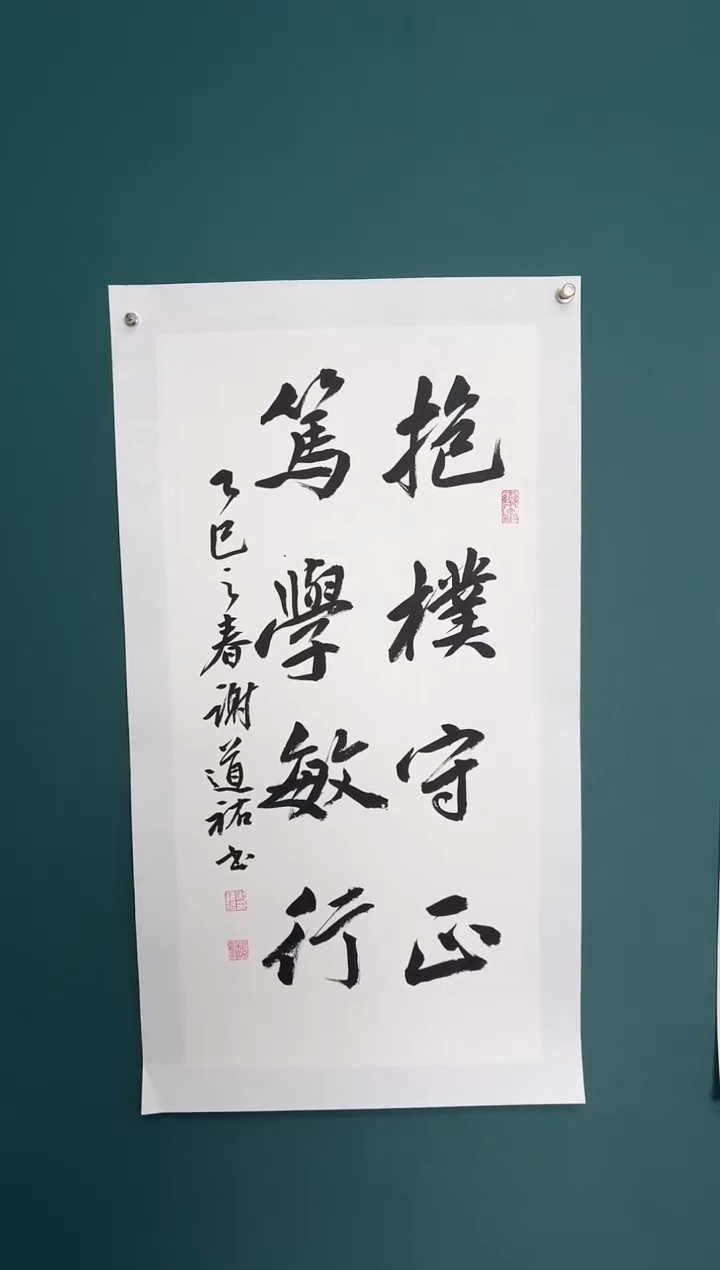 抱樸守正
篤學敏行
乙巳之春谢道祐书